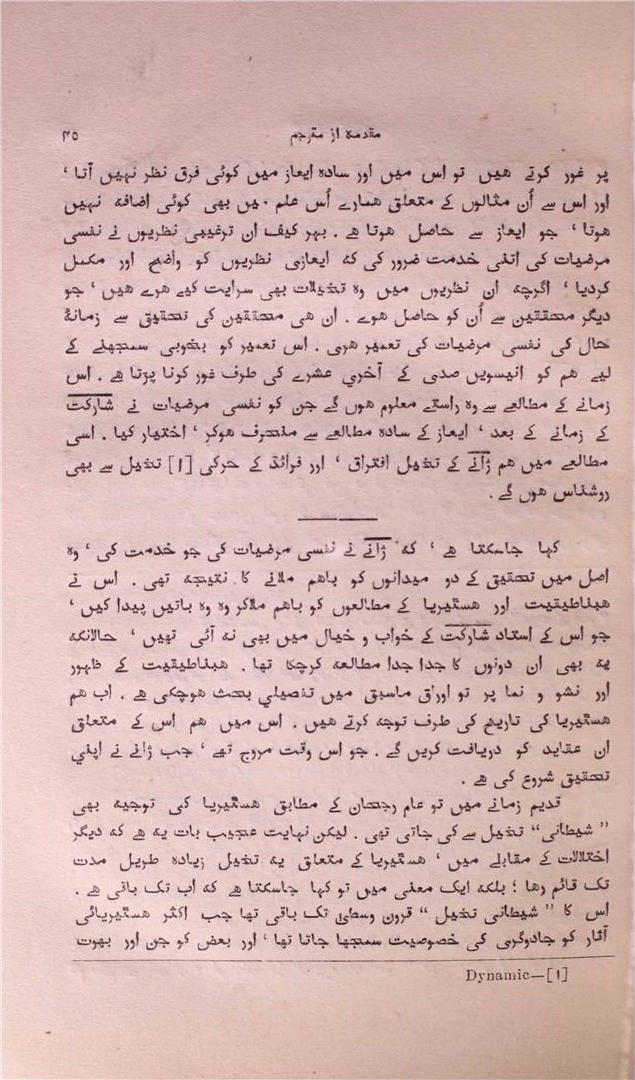 مقدمہ از مترجم ۴۵
پر غور کرتے ھیں تو اس میں اور سادہ ایعاز میں کوئی فرق نظر نہیں آتا ،
اور اس سے اُن مثالوں کے متعلق ھمارے اُس علم میں بھی کوئی اضافہ نہیں
ھوتا ، جو ایعاز سے حاصل ھوتا ھے . بہر کیف ان ترغیبی نظریوں نے نفسی
مرضیات کی اتنی خدمت ضرور کی کہ ایعازی نظریوں کو واضح اور مکمل
کردیا ، اگرچہ ان نظریوں میں وہ تخیلات بھی سرایت کیے ھوے ھیں ، جو
دیگر محققین سے اُن کو حاصل ھوے . ان ھی محققین کی تحقیق سے زمانۂ
حال کی نفسی مرضیات کی تعمیر ھوی . اس تعمیر کو بخوبی سمجھنے کے
لیے ھم کو انیسویں صدی کے آخری عشرے کی طرف غور کرنا پڑتا ھے . اس
زمانے کے مطالعے سے وہ راستے معلوم ھوں گے جن کو نفسی مرضیات نے شارکت
کے زمانے کے بعد ، ایعاز کے سادہ مطالعے سے منحرف ھوکر ، اختیار کیا . اسی
مطالعے میں ھم ژانے کے تخیل افتراق ، اور فرائڈ کے حرکی [۱] تخیل سے بھی
روشناس ھوں گے .
کہا جاسکتا ھے ، کہ ژانے نے نفسی مرضیات کی جو خدمت کی ، وہ
اصل میں تحقیق کے دو میدانوں کو باھم ملانے کا نتیجہ تھی . اس نے
ھبناطیقیت اور ھسٹیریا کے مطالعوں کو باھم ملاکر وہ وہ باتیں پیدا کیں ،
جو اس کے استاد شارکت کے خواب و خیال میں بھی نہ آئی تھیں ، حالانکہ
یہ بھی ان دونوں کا جدا جدا مطالعہ کرچکا تھا . ھبناطیقیت کے ظہور
اور نشو و نما پر تو اوراق ماسبق میں تفصیلی بحث ھوچکی ھے . اب ھم
ھسٹیریا کی تاریخ کی طرف توجہ کرتے ھیں . اس میں ھم اس کے متعلق
ان عقاید کو دریافت کریں گے . جو اس وقت مروج تھے ، جب ژانے نے اپنی
تحقیق شروع کی ھے .
قدیم زمانے میں تو عام رجحان کے مطابق ھسٹیریا کی توجیہ بھی
” شیطانی“ تخیل سے کی جاتی تھی . لیکن نہایت عجیب بات یہ ھے کہ دیگر
اختلالات کے مقابلے میں ، ھسٹیریا کے متعلق یہ تخیل زیادہ طویل مدت
تک قائم رھا ؛ بلکہ ایک معنی میں تو کہا جاسکتا ھے کہ اب تک باقی ھے .
اس کا ” شیطانی تخیل “ قرون وسطیٰ تک باقی تھا جب اکثر ھسٹیریائی
آثار کو جادوگری کی خصوصیت سمجھا جاتا تھا ، اور بعض کو جن اور بھوت
Dynamic—[۱]